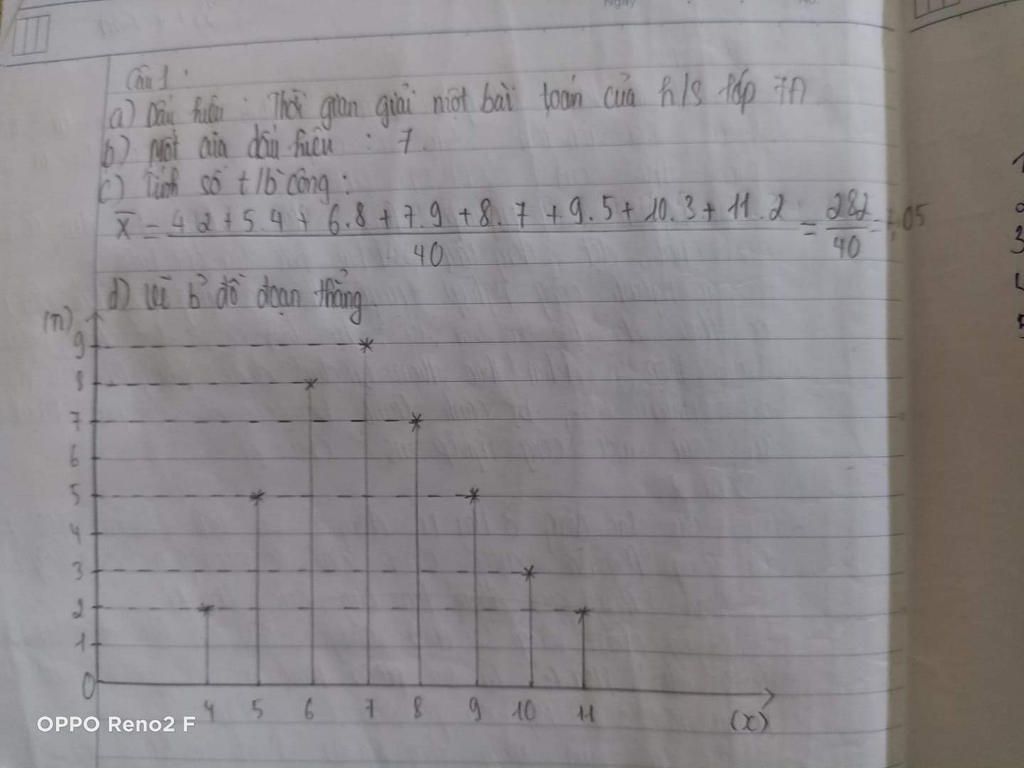 Câu 1:
a) Dấu hiệu: Thời gian giải một bài toán của h/s lớp 7A
b) Mốt của dấu hiệu: 7
c) Tính số t/b cộng:
X̄ = 4.2 + 5.4 + 6.8 + 7.9 + 8.7 + 9.5 + 10.3 + 11.2 / 40 = 282 / 40 = 7,05
d) Vẽ b' đồ đoạn thẳng
(n)
9
8
7
6
5
4
3
2
1
0
4 5 6 7 8 9 10 11 (x)
OPPO Reno2 F